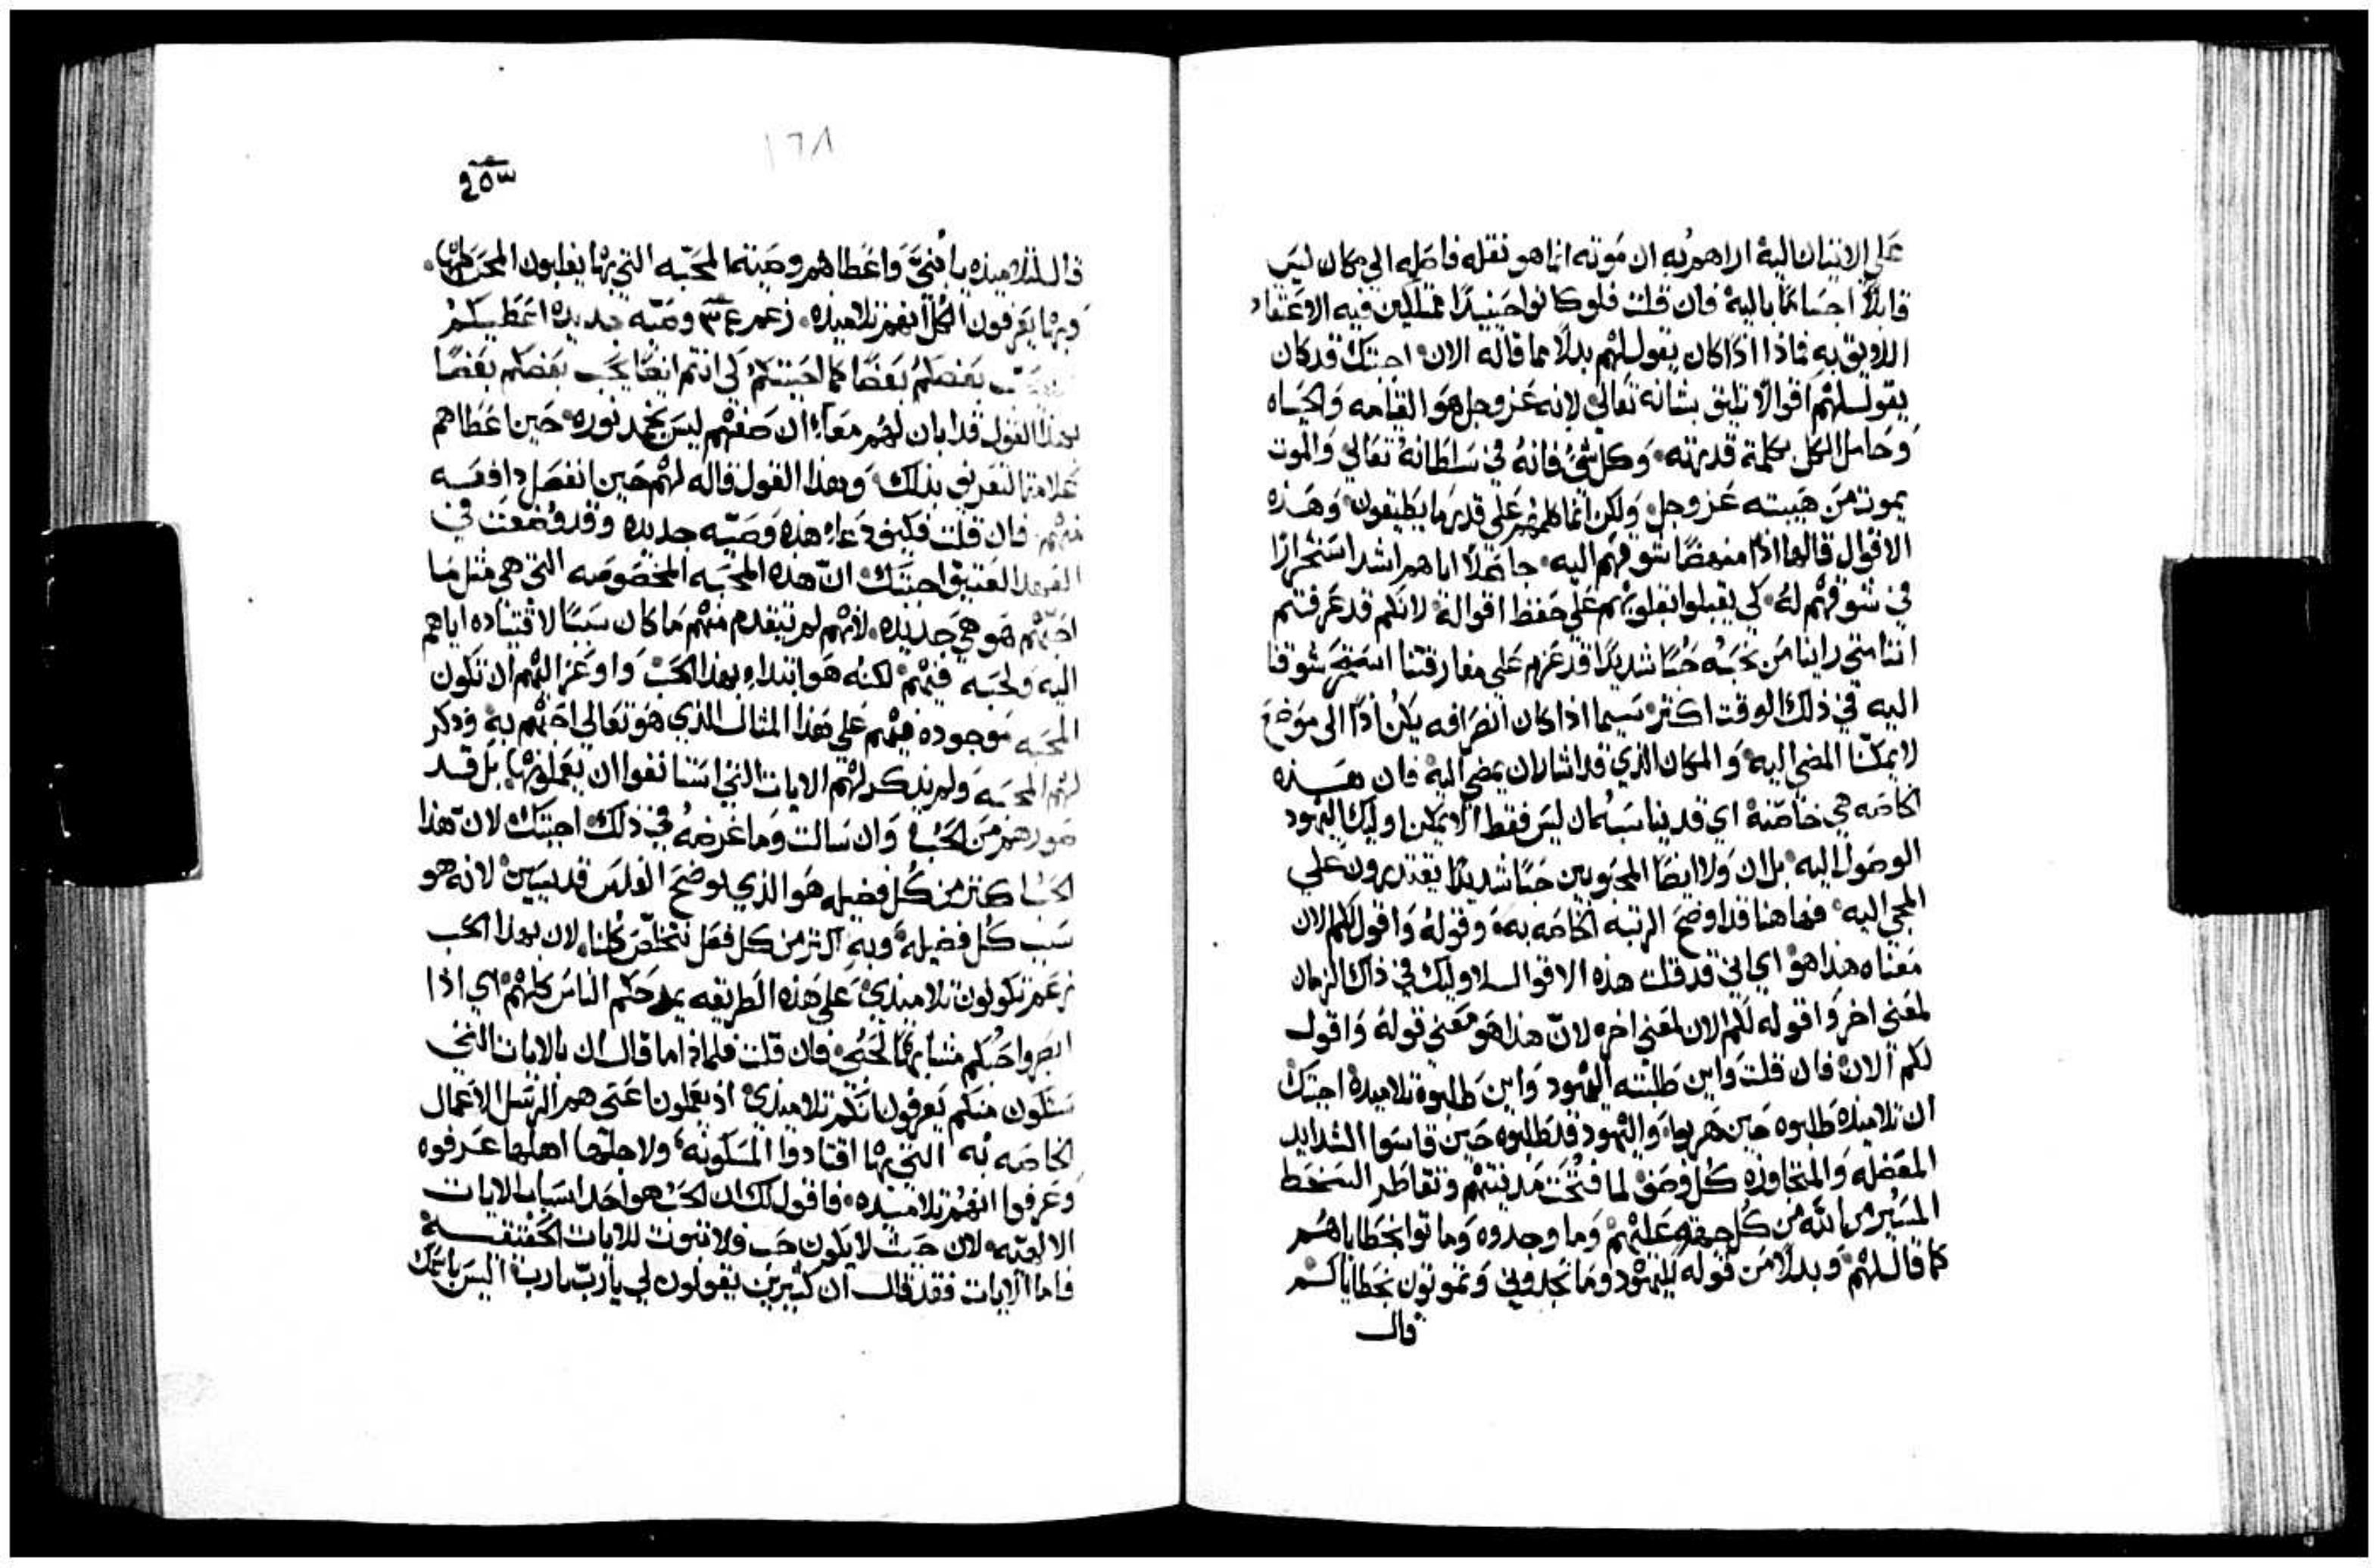 علي الاتيان اليه اراهم به ان موته انما هو نقله فاضله الي مكان ليس
قابلاً اجسامًا باليه فان قلت فلو كانوا حينيدًا ممتلكين فيه الاعتقاد
اللايق به فماذا اذًا كان يقول لهم بدلاً مما قاله الان اجبتك قد كان
يقول لهم اقوالاً تليق بشانه تعالي لانه عز وجل هو القيامه والحياه
وحامل الكل بكلمة قدرته وكل شي فانه في سلطانه تعالي والموت
يموت من هيبته عز وجل ولكن انما كلمهم علي قدر ما يطيقون وهذه
الاقوال قالها اذًا منهضًا شوقهم اليه جاعلاً اياهم اشد استحرارًا
في شوقهم له كي يقبلوا بقلوبهم علي حفظ اقواله لانكم قد عرفتم
اننا متي راينا من نحبه حبًا شديدًا قد عزم علي مفارقتنا استحر شوقنا
اليه في ذلك الوقت اكثر سيما اذا كان انصرافه يكن اذًا الي موضع
لا يمكننا المضي اليه والمكان الذي قد اشار ان يمضي اليه فان هذه
الخاصه هي خاصته اي قد بينا سبتمان ليس فقط الا يمكن اوليك اليهود
الوصول اليه بل ان ولا ايضًا المحبوبين حبًا شديدًا يقتدرون علي
المجي اليه فهاهنا قد اوضح الرتبه الخاصه به وقوله واقول لكم الان
معناه هذا هو اي اني قد قلت هذه الاقوال لاوليك في ذاك الزمان
لمعني اخر واقوله لكم الان لمعني اخر لان هذا هو معني قوله واقول
لكم الان فان قلت واين طلبته اليهود واين طلبوه تلاميده اجبتك
ان تلاميذه طلبوه حين هربوا واليهود فطلبوه حين قاسوا الشدايد
المعضله والمتجاوزه كل وصف لما فتحت مدينتهم وتقاطر السخط
المسير من الله من كل جهة عليهم وما وجدوه وماتوا بخطاياهم
كما قال لهم وبدلاً من قوله لليهود وما تجدوني وتموتون بخطاياكم
قال
١٦٨
قال لتلاميذه يا بنيّ واعطاهم وصيته المحبه التي بها يغلبون المحن كلها
وبها يعرفون الكل انهم تلاميذه زعم وصيّه جديده اعطيكم
بعضكم بعضًا كما احببتكم كي انتم ايضًا يحب بعضكم بعضًا
بهذا القول قد ابان لهم معًا ان صفتهم ليس يخمد نوره حين اعطاهم
علامة التعريف بذلك وبهذا القول قاله لهم حين انفصل دافعه
منهم فان قلت فكيف دعا هذه وصيّه جديده وقد وضعت في
العهد العتيق اجبتك ان هذه المحبه المخصوصه التي هي مثل ما
احبهم هو هي جديده لانهم لم يتقدم منهم ما كان سببًا لاقتياده اياهم
اليه ولحبه فيهم لكنه هو ابتدا بهذا الحب واوعز اليهم ان تكون
المحبه موجوده فيهم علي هذا المثال الذي هو تعالي احبهم به وذكر
لهم المحبه ولم يذكر لهم الايات التي استانفوا ان يعملونها بل قد
صورهم من الحب وان سالت وما غرضه في ذلك اجبتك لان هذا
الحب اكثر من كل فضيله هو الذي يوضح الناس قديسين لانه هو
سبب كل فضيله وبه اكثر من كل فعل نتخلص كلنا لان بهذا الحب
زعم تكونون تلاميذي علي هذه الطريقه يمدحكم الناس كلهم اي اذا
ابصروا حبكم مشابهًا لحبي فان قلت فلماذا ما قال ان بالايات التي
ستكون منكم يعرفون انكم تلاميذي اذ يعملون اعني هم الرسل الاعمال
الخاصه به التي بها اقتادوا المسكونه ولاجلها اهلها عرفوه
وعرفوا انهم تلاميذه فاقول لك ان الحب هو احد اسباب الايات
الالهيه لان حيث لا يكون حب فلا تبوت للايات
فاما الايات فقد قال ان كثيرين يقولون لي يا رب يا رب اليس باسمك